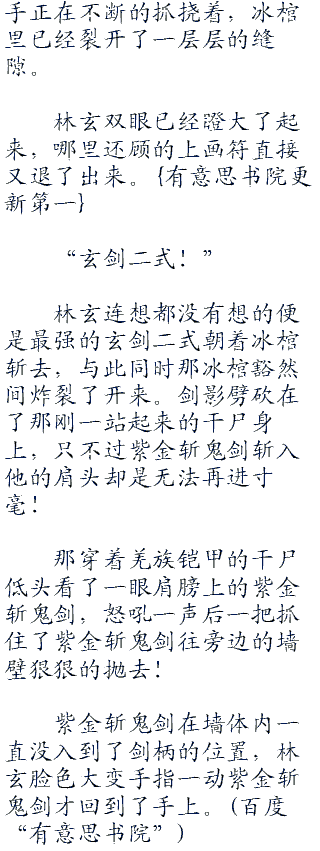 手正在不断的抓挠着，冰棺
里已经裂开了一层层的缝
隙。
林玄双眼已经瞪大了起
来，哪里还顾的上画符直接
又退了出来。{有意思书院更
新第一}
“玄剑二式！”
林玄连想都没有想的便
是最强的玄剑二式朝着冰棺
斩去，与此同时那冰棺豁然
间炸裂了开来。剑影劈砍在
了那刚一站起来的干尸身
上，只不过紫金斩鬼剑斩入
他的肩头却是无法再进寸
毫！
那穿着羌族铠甲的干尸
低头看了一眼肩膀上的紫金
斩鬼剑，怒吼一声后一把抓
住了紫金斩鬼剑往旁边的墙
壁狠狠的抛去！
紫金斩鬼剑在墙体内一
直没入到了剑柄的位置，林
玄脸色大变手指一动紫金斩
鬼剑才回到了手上。(百度
“有意思书院”)